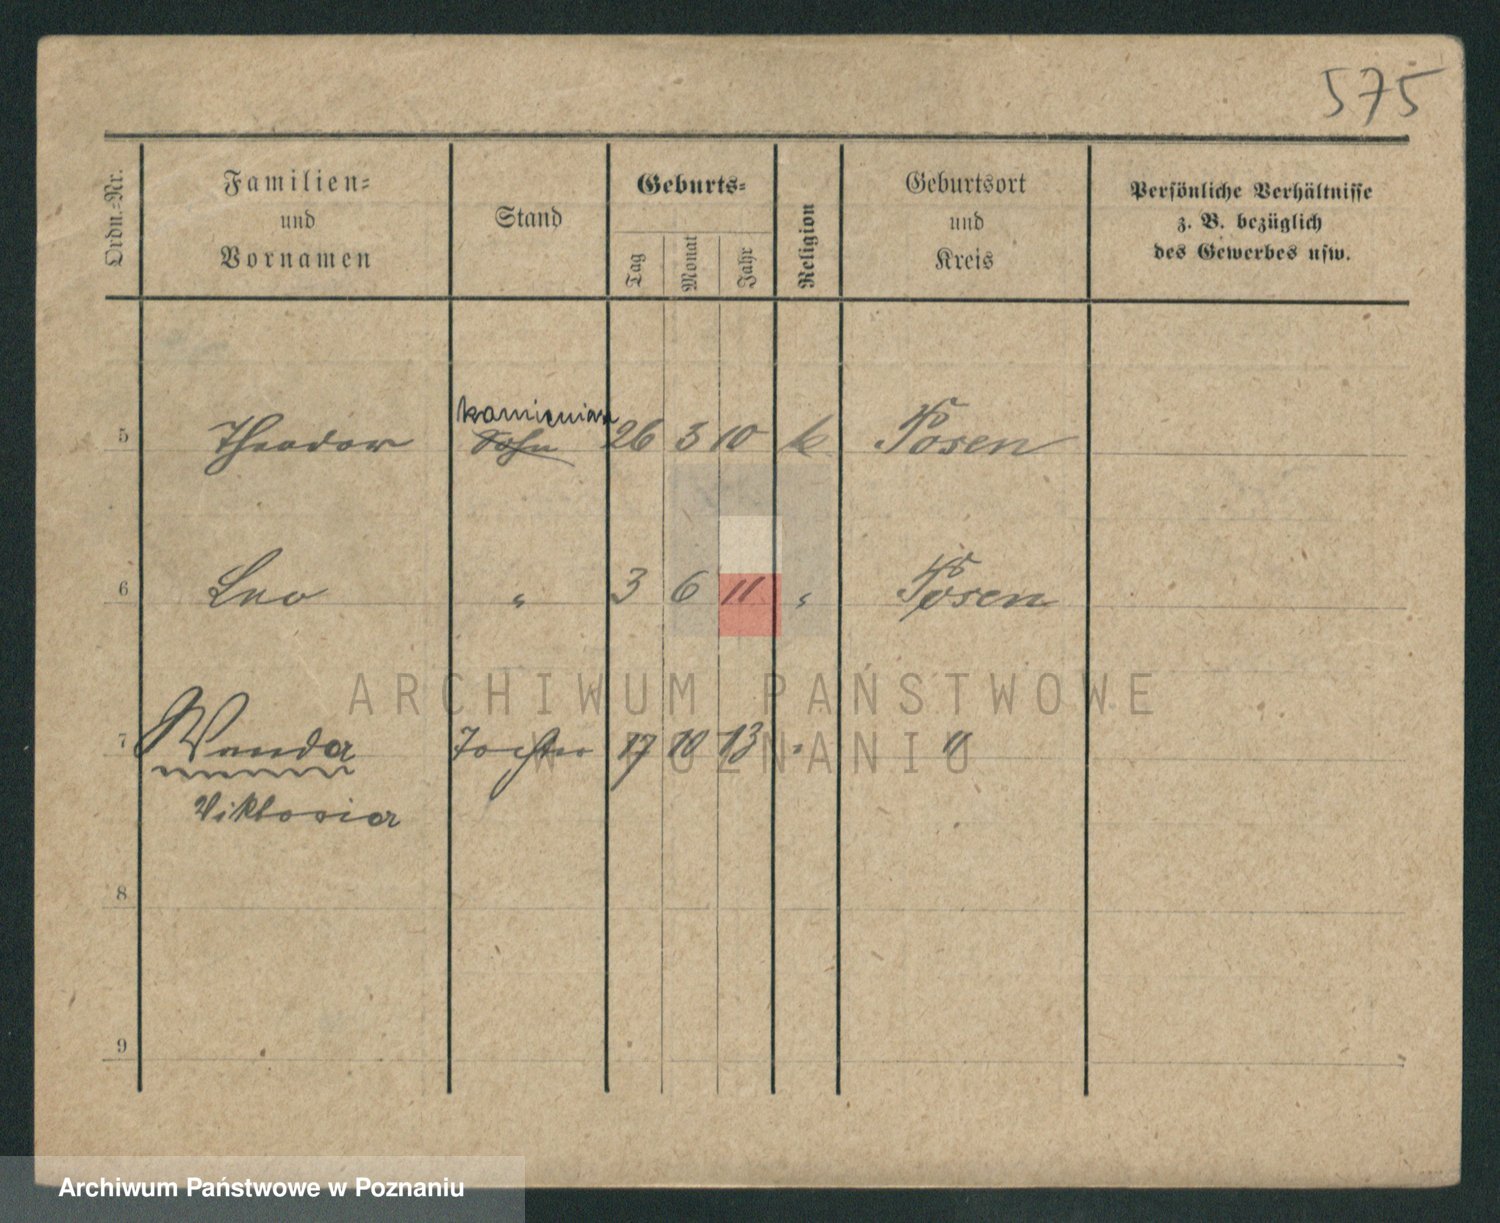 575
Ordn.-Nr.
Familien-
und
Vornamen
Stand
Geburts-
Tag
Monat
Jahr
Religion
Geburtsort
und
Kreis
Persönliche Verhältnisse
z. B. bezüglich
des Gewerbes usw.
kamieniarz
5 Theodor Sohn 26 3 10 k Posen
6 Leo " 3 6 11 " Posen
7 Wanda Tochter 17 10 13 " "
Viktoria
8
9
ARCHIWUM PAŃSTWOWE
W POZNANIU
Archiwum Państwowe w Poznaniu